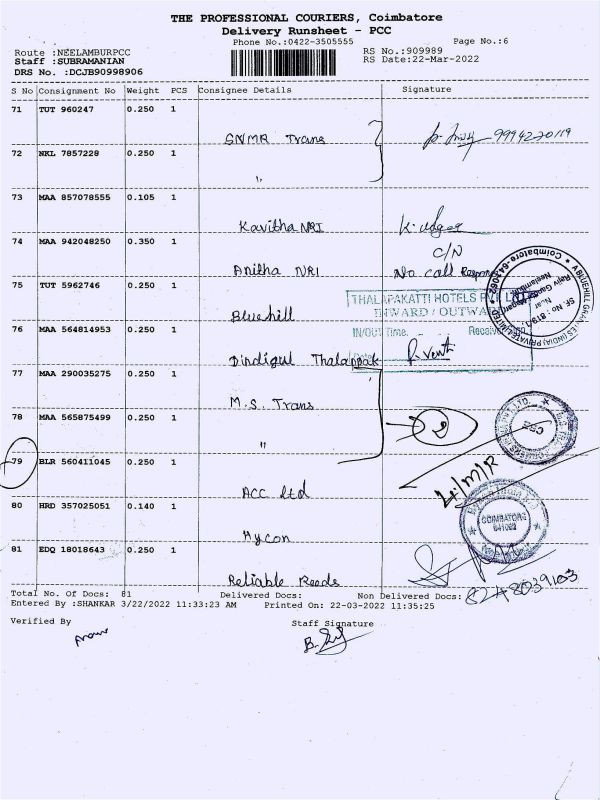 THE PROFESSIONAL COURIERS, Coimbatore
Delivery Runsheet - PCC
Phone No.:0422-3505555 Page No.:6
Route :NEELAMBURPCC RS No.:909989
Staff :SUBRAMANIAN RS Date:22-Mar-2022
DRS No. :DCJB90998906
S No Consignment No Weight PCS Consignee Details Signature
71 TUT 960247 0.250 1
SNMR Trans 9994220119
72 NKL 7857228 0.250 1
"
73 MAA 857078555 0.105 1
Kavitha NRI
74 MAA 942048250 0.350 1 C/N
Anitha NRI No call Respon
75 TUT 5962746 0.250 1
Bluehill
THALAPAKATTI HOTELS PVT LTD
INWARD / OUTWA
76 MAA 564814953 0.250 1
IN/OUT Time. Receiv
Dindigul Thalappak
77 MAA 290035275 0.250 1
M.S. Trans
78 MAA 565875499 0.250 1
"
79 BLR 560411045 0.250 1
ACC Ltd
80 HRD 357025051 0.140 1
COIMBATORE
641062
Aycon
81 EDQ 18018643 0.250 1
Reliable Reeds
8248039103
Total No. Of Docs: 81 Delivered Docs: Non Delivered Docs:
Entered By :SHANKAR 3/22/2022 11:33:23 AM Printed On: 22-03-2022 11:35:25
Verified By Staff Signature